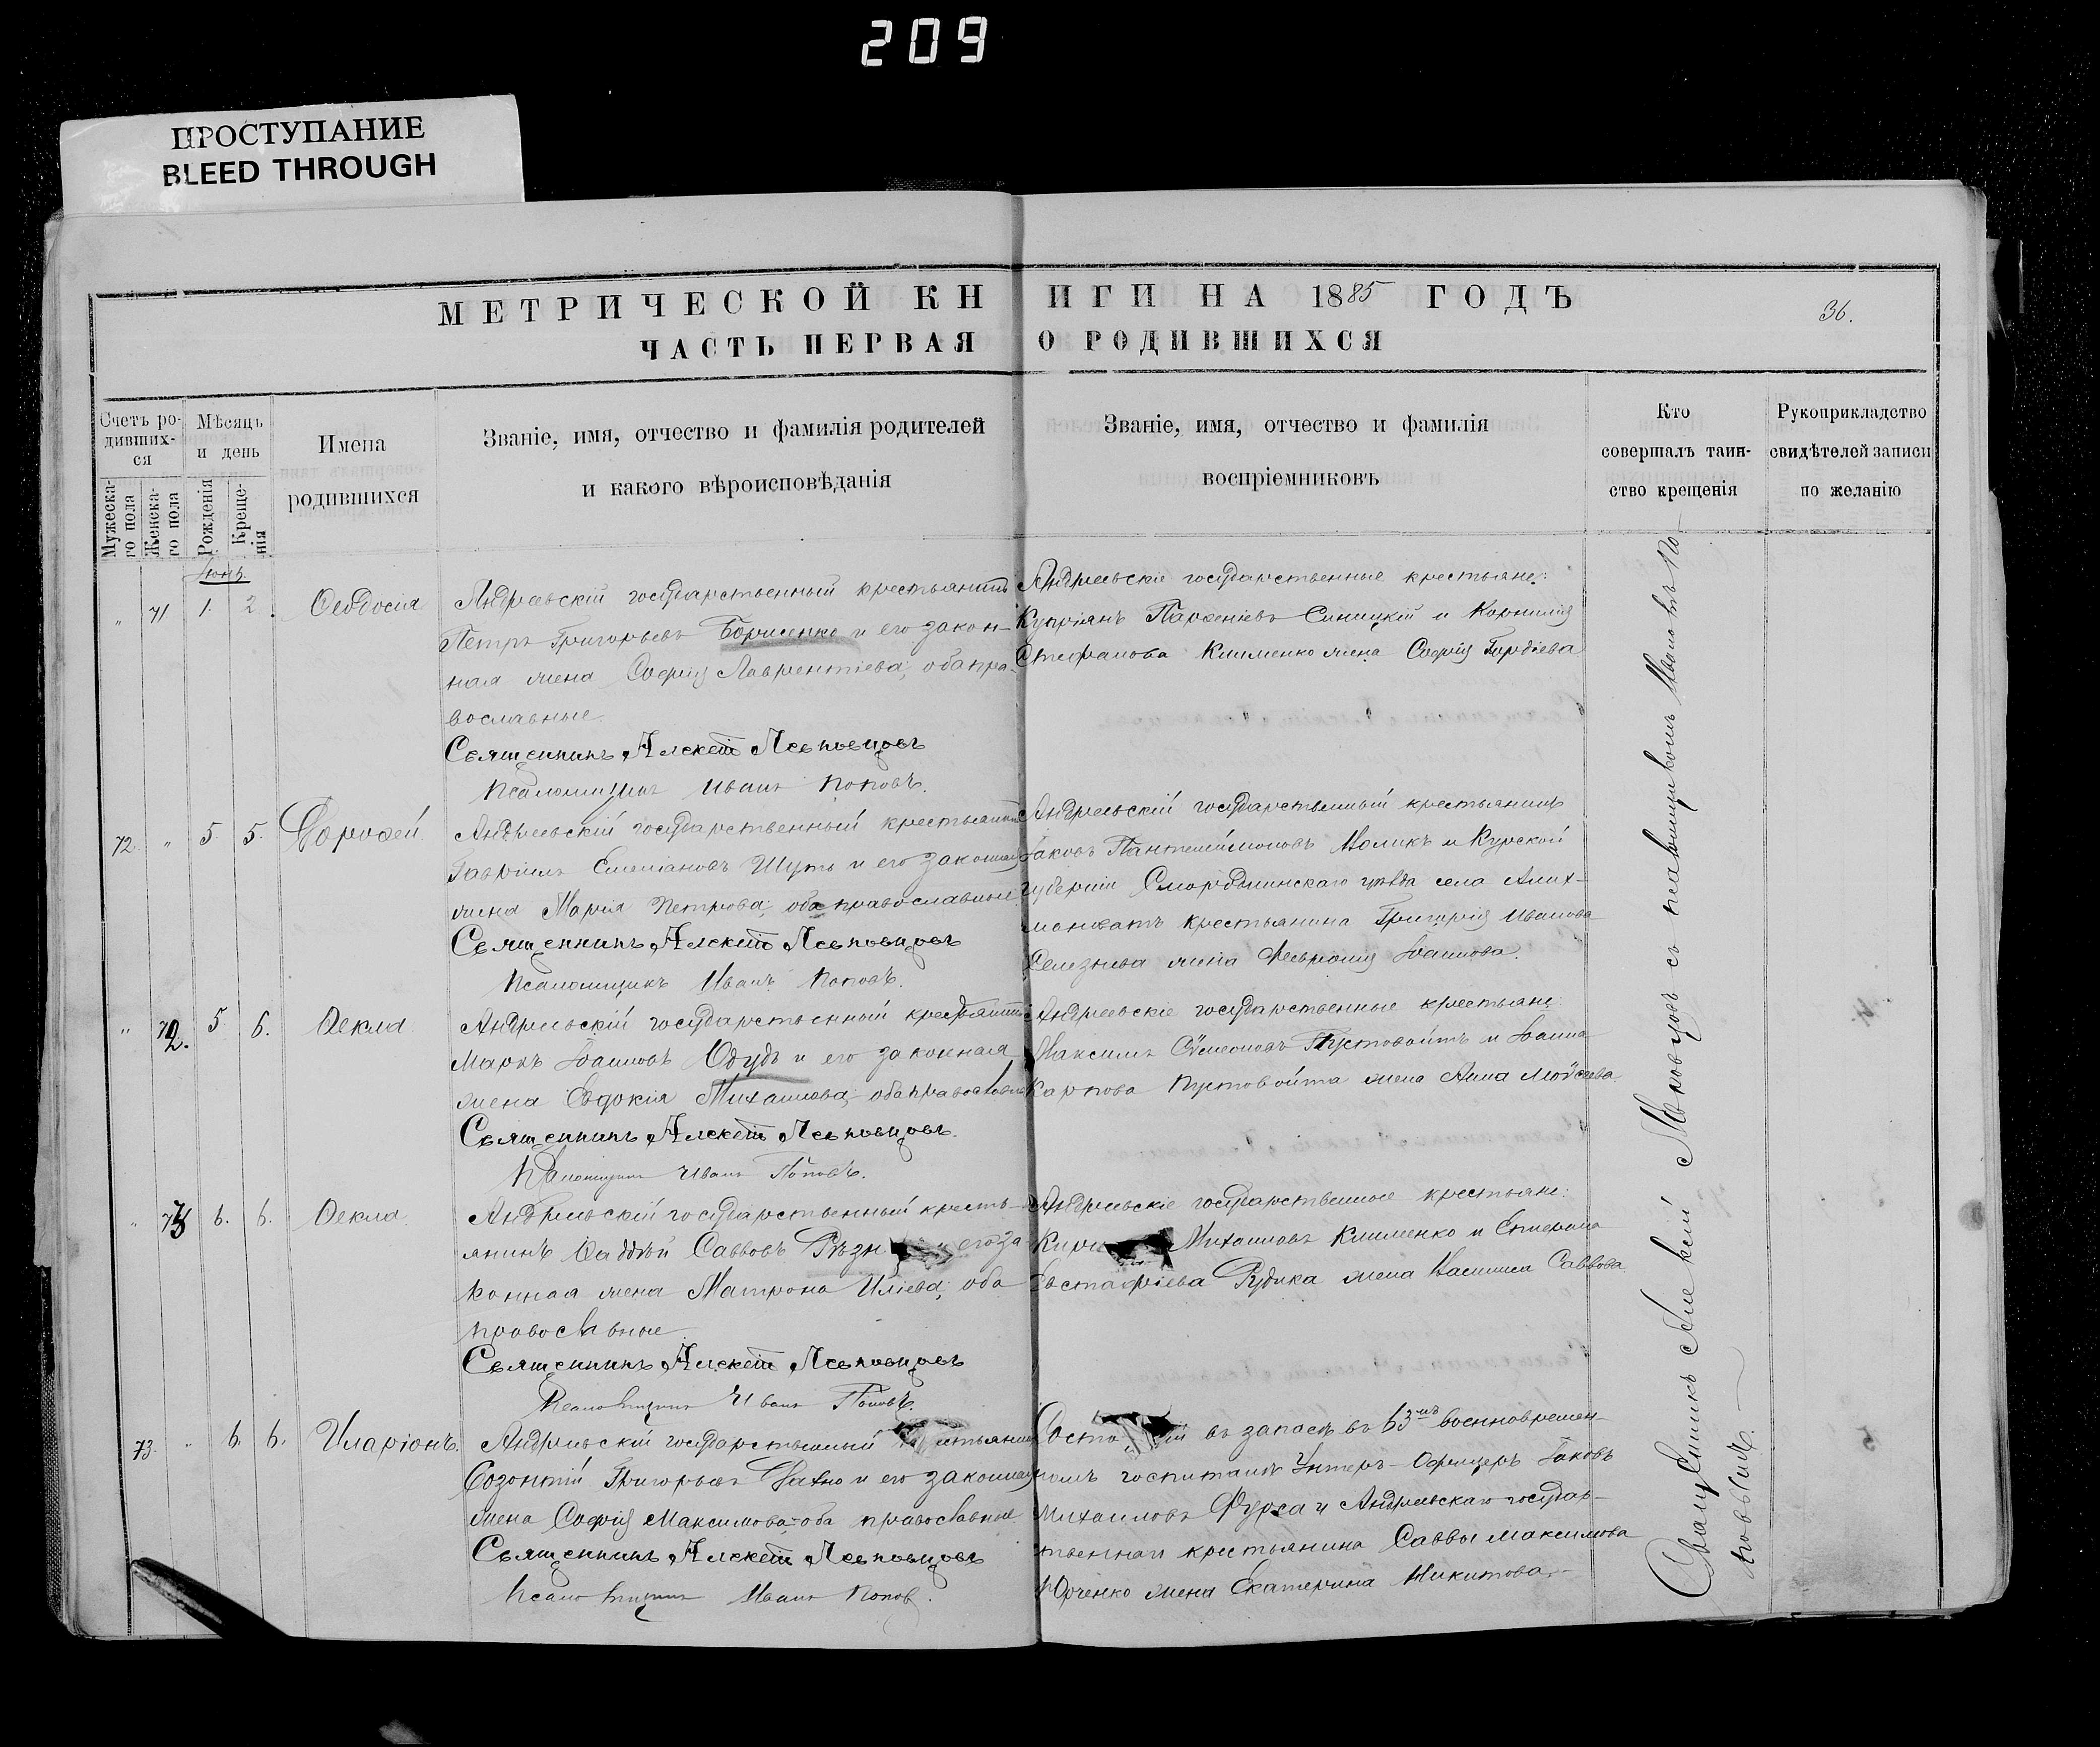 209
ПРОСТУПАНИЕ
BLEED THROUGH
МЕТРИЧЕСКОЙ КНИГИ НА 1885 ГОДЪ
36.
ЧАСТЬ ПЕРВАЯ О РОДИВШИХСЯ
Счетъ ро-
дивших-
ся
Мужеска-
го пола
Женска-
го пола
Мѣсяцъ
и день
Рожденія
Креще-
нія
Имена
родившихся
Званіе, имя, отчество и фамилія родителей
и какого вѣроисповѣданія
Званіе, имя, отчество и фамилія
воспріемниковъ
Кто
совершалъ таин-
ство крещенія
Рукоприкладство
свидѣтелей записи
по желанію
" 71 1. 2. Ѳеодосія
Андреевскій государственный крестьянинъ
Петръ Григорьевъ Борисенко и его закон-
ная жена Софія Лаврентіева; оба пра-
вославные.
Священникъ Алексѣй
Псаломщикъ Иванъ Поповъ.
Андреевскіе государственные крестьяне:
Купріянъ Парѳеніевъ Синицкій и Корнилія
Стефанова Клименко жена Софія Гордіева
72. " 5. 5. Дороѳей.
Андреевскій государственный крестьянинъ
Гавріилъ Емеліановъ Шуть и его законная
жена Марія Петрова; оба православные.
Священникъ Алексѣй
Псаломщикъ Иванъ Поповъ.
Андреевскій государственный крестьянинъ
Іаковъ Пантелеймоновъ Моликъ и Курской
губерніи уѣзда села
крестьянина Григорія Иванова
Селезнева жена Февронія Іоаннова.
" 72. 5. 6. Ѳекла
Андреевскій государственный крестьянинъ
Маркъ Іоанновъ Одудъ и его законная
жена Евдокія Михаилова; оба православные
Священникъ Алексѣй
Псаломщикъ Иванъ Поповъ.
Андреевскіе государственные крестьяне:
Максимъ Сѵмеоновъ Пустовойтъ и Іоанна
Карпова Пустовойта жена Анна Моѵсеева.
" 73 6. 6. Ѳекла.
Андреевскій государственный кресть-
янинъ Ѳаддѣй Саввовъ и его за-
конная жена Матрона Иліева; оба
православные
Священникъ Алексѣй
Псаломщикъ Иванъ Поповъ.
Андреевскіе государственные крестьяне:
Михаиловъ Клименко и
Евстафіева Рудика жена Василиса Саввова.
73. " 6. 6. Иларіонъ.
Андреевскій государственный крестьянинъ
Созонтій Григорьевъ и его законная
жена Софія Максимова, оба православные.
Священникъ Алексѣй
Псаломщикъ Иванъ Попов.
въ запасѣ въ 63мъ военновремен-
номъ госпиталѣ Унтеръ-Офицеръ Іаковъ
Михаиловъ Фурса и Андреевскаго государ-
ственнаго крестьянина Саввы Максимова
Юрченко жена Екатерина Никитова.
Священникъ Алексѣй съ псаломщикомъ Иваномъ По-
повымъ.